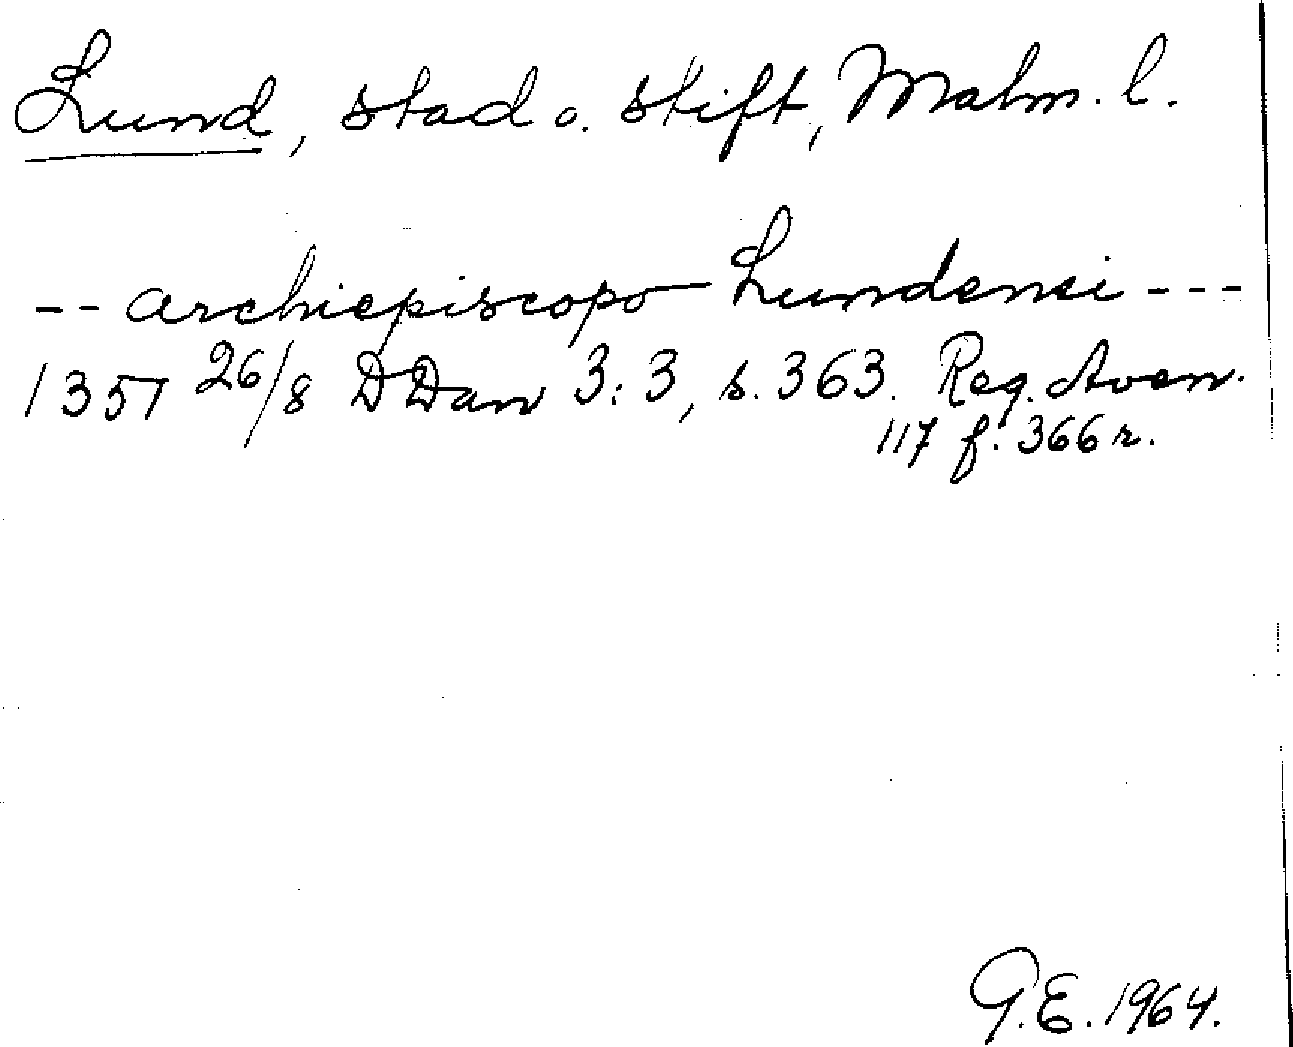 Lund, stad o. stift, Malm. l.
-- archiepiscopo Lundensi ---
1351 26/8 DDan 3:3, s. 363. Reg. Aven.
117 f. 366 r.
G.E. 1964.